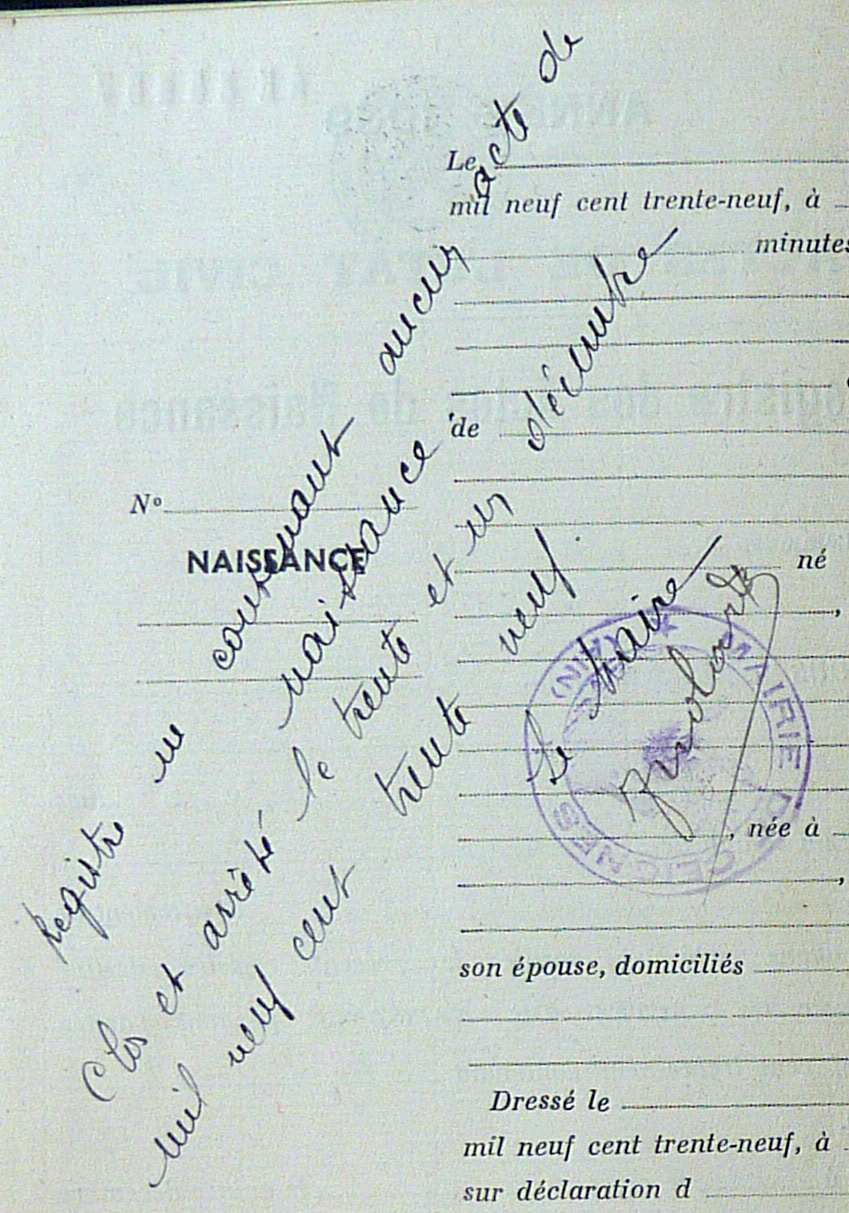 Le
mil neuf cent trente-neuf, à
minutes
de
N°
NAISSANCE
né
, née à
son épouse, domiciliés
Dressé le
mil neuf cent trente-neuf, à
sur déclaration d
Registre ne contenant aucun acte de
naissance.
Clos et arrêté le trente et un décembre
mil neuf cent trente neuf.
Le Maire
MAIRIE DE CEIGNES (AIN)